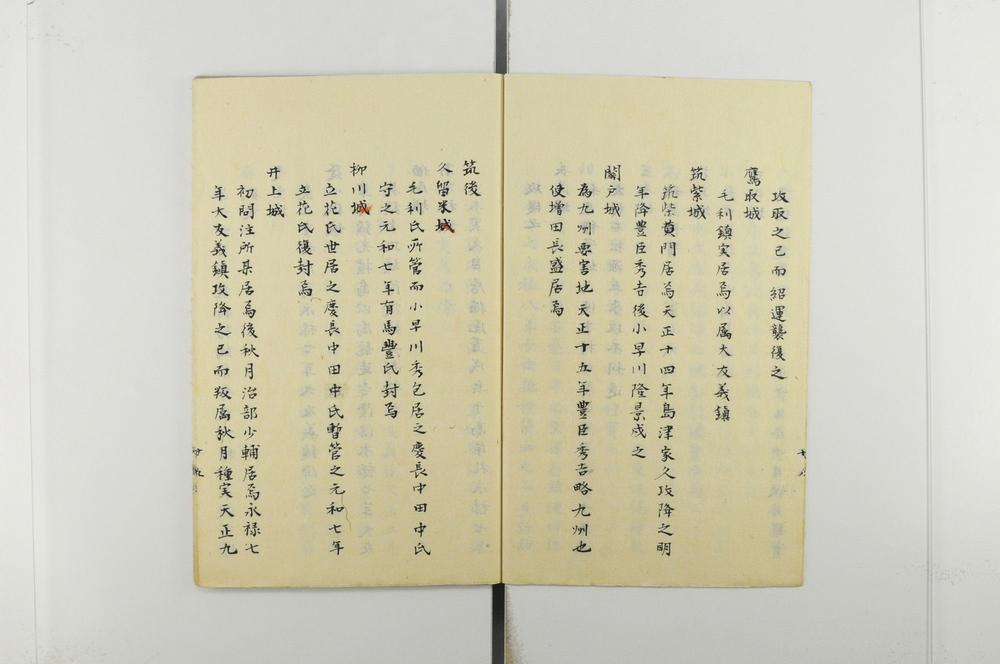 攻取之已而紹運襲復之
鷹取城
毛利鎮実居焉以属大友義鎮
筑紫城
筑紫黄門居焉天正十四年島津家久攻降之明
年降豊臣秀吉後小早川隆景戍之
関戸城
為九州要害地天正十五年豊臣秀吉略九州也
使増田長盛居焉
筑後
久留米城
毛利氏所管而小早川秀包居之慶長中田中氏
守之元和七年有馬豊氏封焉
柳川城
立花氏世居之慶長中田中氏暫管之元和七年
立花氏復封焉
井上城
初問注所某居焉後秋月治部少輔居焉永禄七
年大友義鎮攻降之已而叛属秋月種実天正九